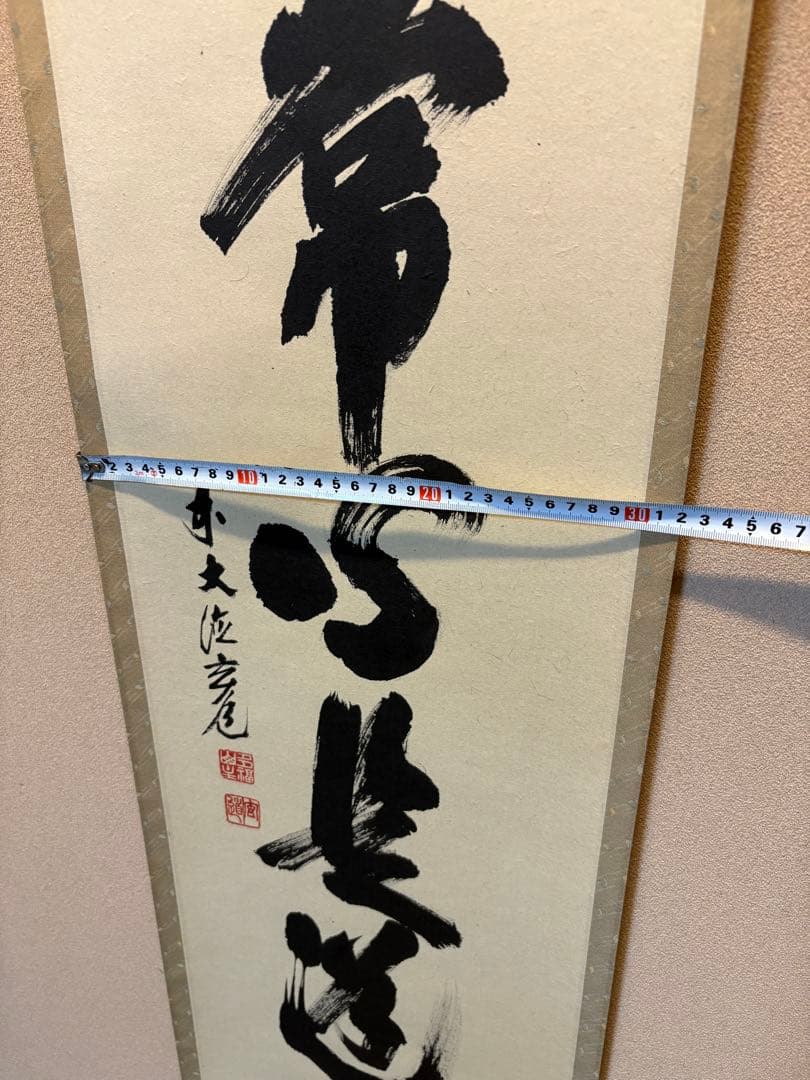 常心是道
大徳
2 3 4 5 6 7 8 9 10 1 2 3 4 5 6 7 8 9 20 1 2 3 4 5 6 7 8 9 30 1 2 3 4 5 6 7